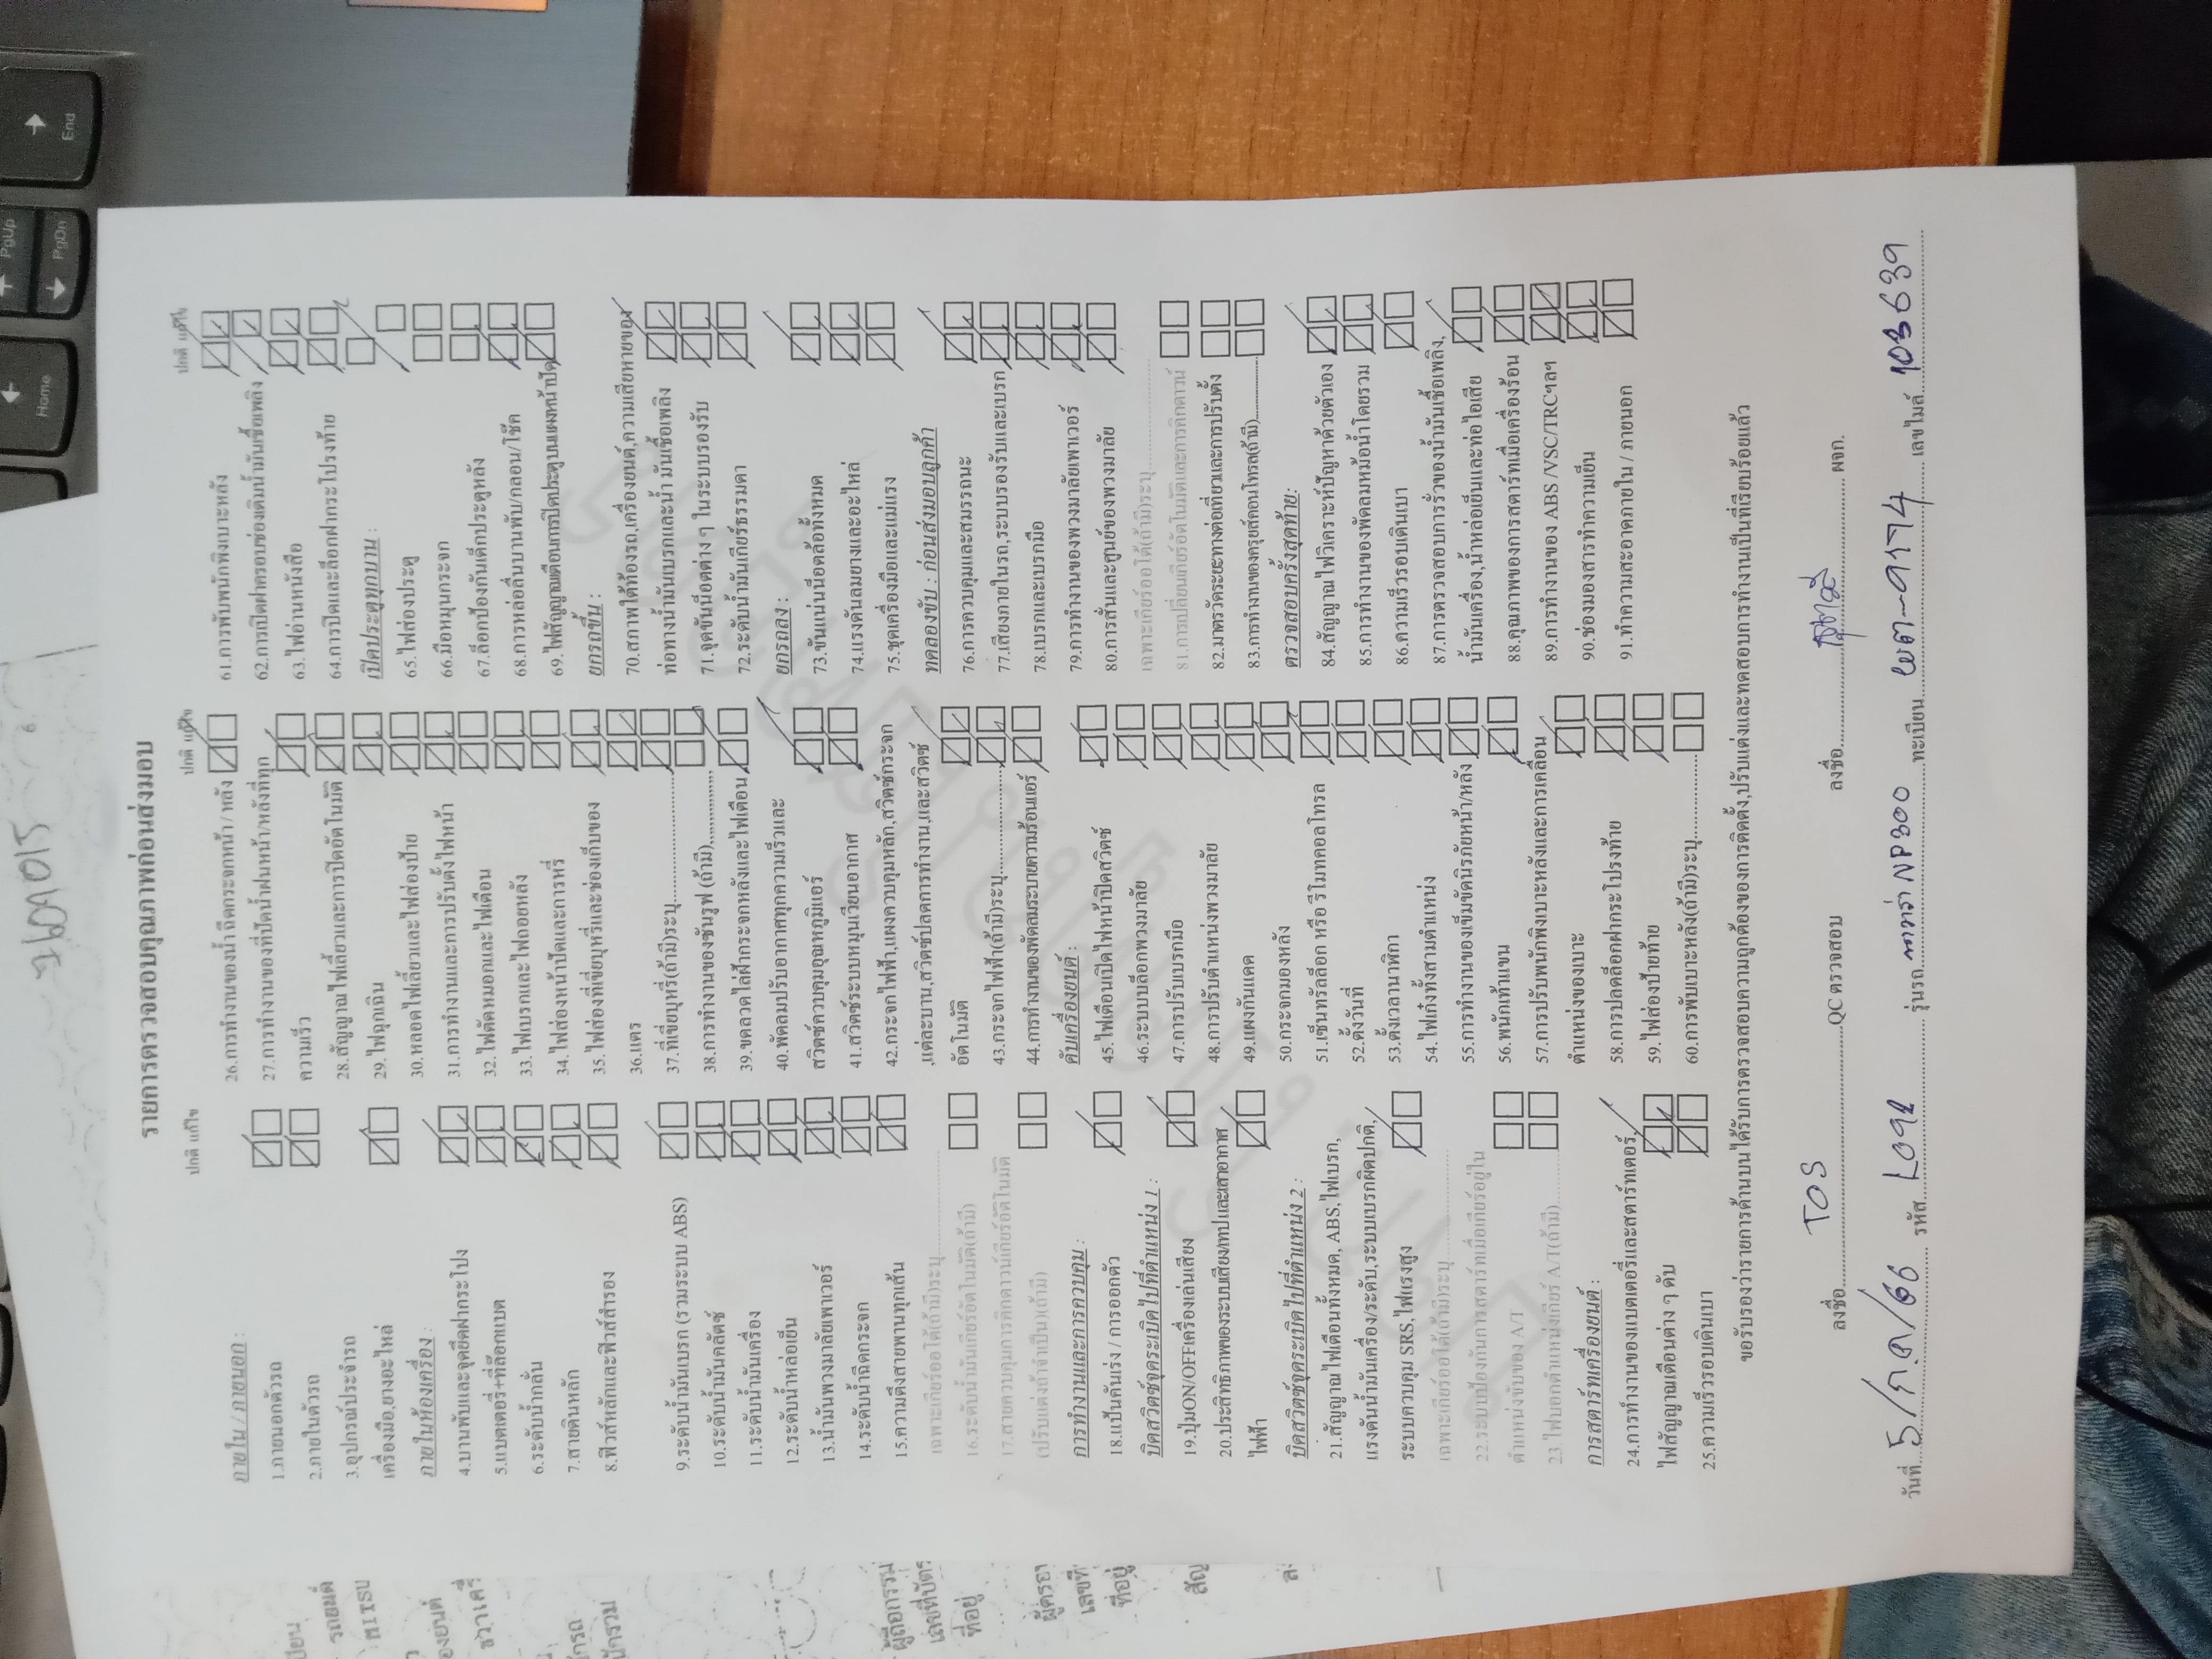 รายการตรวจสอบคุณภาพก่อนส่งมอบ
ปกติ แก้ไข
ภายใน / ภายนอก :
1.ภายนอกตัวรถ
2.ภายในตัวรถ
3.อุปกรณ์ประจำรถ
เครื่องมือ,ยางอะไหล่
ภายในห้องเครื่อง :
4.บานพับและจุดยึดฝากระโปง
5.แบตเตอรี่+ที่ล๊อกแบต
6.ระดับน้ำกลั่น
7.สายดินหลัก
8.ฟิวส์หลักและฟิวส์สำรอง
9.ระดับน้ำมันเบรก (รวมระบบ ABS)
10.ระดับน้ำมันคลัตซ์
11.ระดับน้ำมันเครื่อง
12.ระดับน้ำหล่อเย็น
13.น้ำมันพวงมาลัยเพาเวอร์
14.ระดับน้ำฉีดกระจก
15.ความตึงสายพานทุกเส้น
เฉพาะเกียร์ออโต้(ถ้ามี)ระบุ
16.ระดับน้ำมันเกียร์อัตโนมัติ(ถ้ามี)
17.สายควบคุมการคิกดาวน์เกียร์อัตโนมัติ
(ปรับแต่งถ้าจำเป็น)(ถ้ามี)
การทำงานและการควบคุม :
18.แป้นคันเร่ง / การออกตัว
บิดสวิตช์จุดระเบิดไปที่ตำแหน่ง 1 :
19.ปุ่มON/OFFเครื่องเล่นเสียง
20.ประสิทธิภาพของระบบเสียง/เทป และเสาอากาศ
ไฟฟ้า
บิดสวิตช์จุดระเบิดไปที่ตำแหน่ง 2 :
21.สัญญาณไฟเตือนทั้งหมด, ABS,ไฟเบรก,
แรงดันน้ำมันเครื่อง/ระดับ,ระบบเบรกผิดปกติ,
ระบบควบคุม SRS,ไฟแรงสูง
เฉพาะเกียร์ออโต้(ถ้ามี)ระบุ
22.ระบบป้องกันการสตาร์ทเมื่อเกียร์อยู่ใน
ตำแหน่งขับของ A/T
23.ไฟบอกตำแหน่งเกียร์ A/T(ถ้ามี)
การสตาร์ทเครื่องยนต์ :
24.การทำงานของแบตเตอรี่และสตาร์ทเตอร์,
ไฟสัญญาณเตือนต่าง ๆ ดับ
25.ความเร็วรอบเดินเบา
ปกติ แก้ไข
26.การทำงานของน้ำฉีดกระจกหน้า / หลัง
27.การทำงานของที่ปัดน้ำฝนหน้า/หลังที่ทุก
ความเร็ว
28.สัญญาณไฟเลี้ยวและการปิดอัตโนมัติ
29.ไฟฉุกเฉิน
30.หลอดไฟเลี้ยวและไฟส่องป้าย
31.การทำงานและการปรับตั้งไฟหน้า
32.ไฟตัดหมอกและไฟเตือน
33.ไฟเบรกและไฟถอยหลัง
34.ไฟส่องหน้าปัดและการหรี่
35.ไฟส่องที่เขี่ยบุหรี่และช่องเก็บของ
36.แตร
37.ที่เขี่ยบุหรี่(ถ้ามี)ระบุ
38.การทำงานของซันรูฟ (ถ้ามี)
39.ขดลวดไล่ฝ้ากระจกหลังและไฟเตือน
40.พัดลมปรับอากาศทุกความเร็วและ
สวิตซ์ควบคุมอุณหภูมิแอร์
41.สวิตซ์ระบบหมุนเวียนอากาศ
42.กระจกไฟฟ้า,แผงควบคุมหลัก,สวิตซ์กระจก
,แต่ละบาน,สวิตซ์ปลดการทำงาน,และสวิตซ์
อัตโนมัติ
43.กระจกไฟฟ้า(ถ้ามี)ระบุ
44.การทำงานของพัดลมระบายความร้อนแอร์
ดับเครื่องยนต์ :
45.ไฟเตือนเปิดไฟหน้าปิดสวิตซ์
46.ระบบบล็อกพวงมาลัย
47.การปรับเบรกมือ
48.การปรับตำแหน่งพวงมาลัย
49.แผงกันแดด
50.กระจกมองหลัง
51.เซ็นทรัลล็อก หรือ รีโมทคอลโทรล
52.ตั้งวันที่
53.ตั้งเวลานาฬิกา
54.ไฟเก๋งทั้งสามตำแหน่ง
55.การทำงานของเข็มขัดนิรภัยหน้า/หลัง
56.พนักเท้าแขน
57.การปรับพนักพิงเบาะหลังและการเคลื่อน
ตำแหน่งของเบาะ
58.การปลดล็อกฝากระโปรงท้าย
59.ไฟส่องป้ายท้าย
60.การพับเบาะหลัง(ถ้ามี)ระบุ
ปกติ แก้ไข
61.การพับพนักพิงเบาะหลัง
62.การเปิดฝาครอบช่องเติมน้ำมันเชื้อเพลิง
63.ไฟอ่านหนังสือ
64.การปิดและล็อกฝากระโปรงท้าย
เปิดประตูทุกบาน :
65.ไฟส่องประตู
66.มือหมุนกระจก
67.ล็อกป้องกันเด็กประตูหลัง
68.การหล่อลื่นบานพับ/กลอน/โช๊ค
69.ไฟสัญญาณเตือนการปิดประตูบนแผงหน้าปัด
ยกรถขึ้น :
70.สภาพใต้ท้องรถ,เครื่องยนต์,ความเสียหายของ
ท่อทางน้ำมันเบรกและน้ำมันเชื้อเพลิง
71.จุดขันน็อตต่าง ๆ ในระบบรองรับ
72.ระดับน้ำมันเกียร์ธรรมดา
ยกรถลง :
73.ขันแน่นน็อตล้อทั้งหมด
74.แรงดันลมยางและอะไหล่
75.ชุดเครื่องมือและแม่แรง
ทดลองขับ : ก่อนส่งมอบลูกค้า
76.การควบคุมและสมรรถนะ
77.เสียงภายในรถ,ระบบรองรับและเบรก
78.เบรกและเบรกมือ
79.การทำงานของพวงมาลัยเพาเวอร์
80.การสั่นและศูนย์ของพวงมาลัย
เฉพาะเกียร์ออโต้(ถ้ามี)ระบุ
81.การเปลี่ยนเกียร์อัตโนมัติและการคิกดาวน์
82.มาตรวัดระยะทางต่อเที่ยวและการปรับตั้ง
83.การทำงานของครุยส์คอนโทรล(ถ้ามี)
ตรวจสอบครั้งสุดท้าย:
84.สัญญาณไฟวิเคราะห์ปัญหาด้วยตัวเอง
85.การทำงานของพัดลมหม้อน้ำโดยรวม
86.ความเร็วรอบเดินเบา
87.การตรวจสอบการรั่วของน้ำมันเชื้อเพลิง,
น้ำมันเครื่อง,น้ำหล่อเย็นและท่อไอเสีย
88.คุณภาพของการสตาร์ทเมื่อเครื่องร้อน
89.การทำงานของ ABS /VSC/TRCฯลฯ
90.ช่องมองสารทำความเย็น
91.ทำความสะอาดภายใน / ภายนอก
ขอรับรองว่ารายการด้านบนได้รับการตรวจสอบความถูกต้องของการติดตั้ง,ปรับแต่งและทดสอบการทำงานเป็นที่เรียบร้อยแล้ว
ลงชื่อ TOS QCตรวจสอบ ลงชื่อ ผจก.
วันที่ 5/ก.ค/66 รหัส L092 รุ่นรถ นาวาร่า NP300 ทะเบียน 9174 เลขไมล์ 103639
End
PgUp
PgDn
Home
รถยนต์
MITSU
ผู้ถือกรรม
เลขที่บัตร
ที่อยู่
ผู้ครอง
เลขที่
ที่อยู่
สัญ